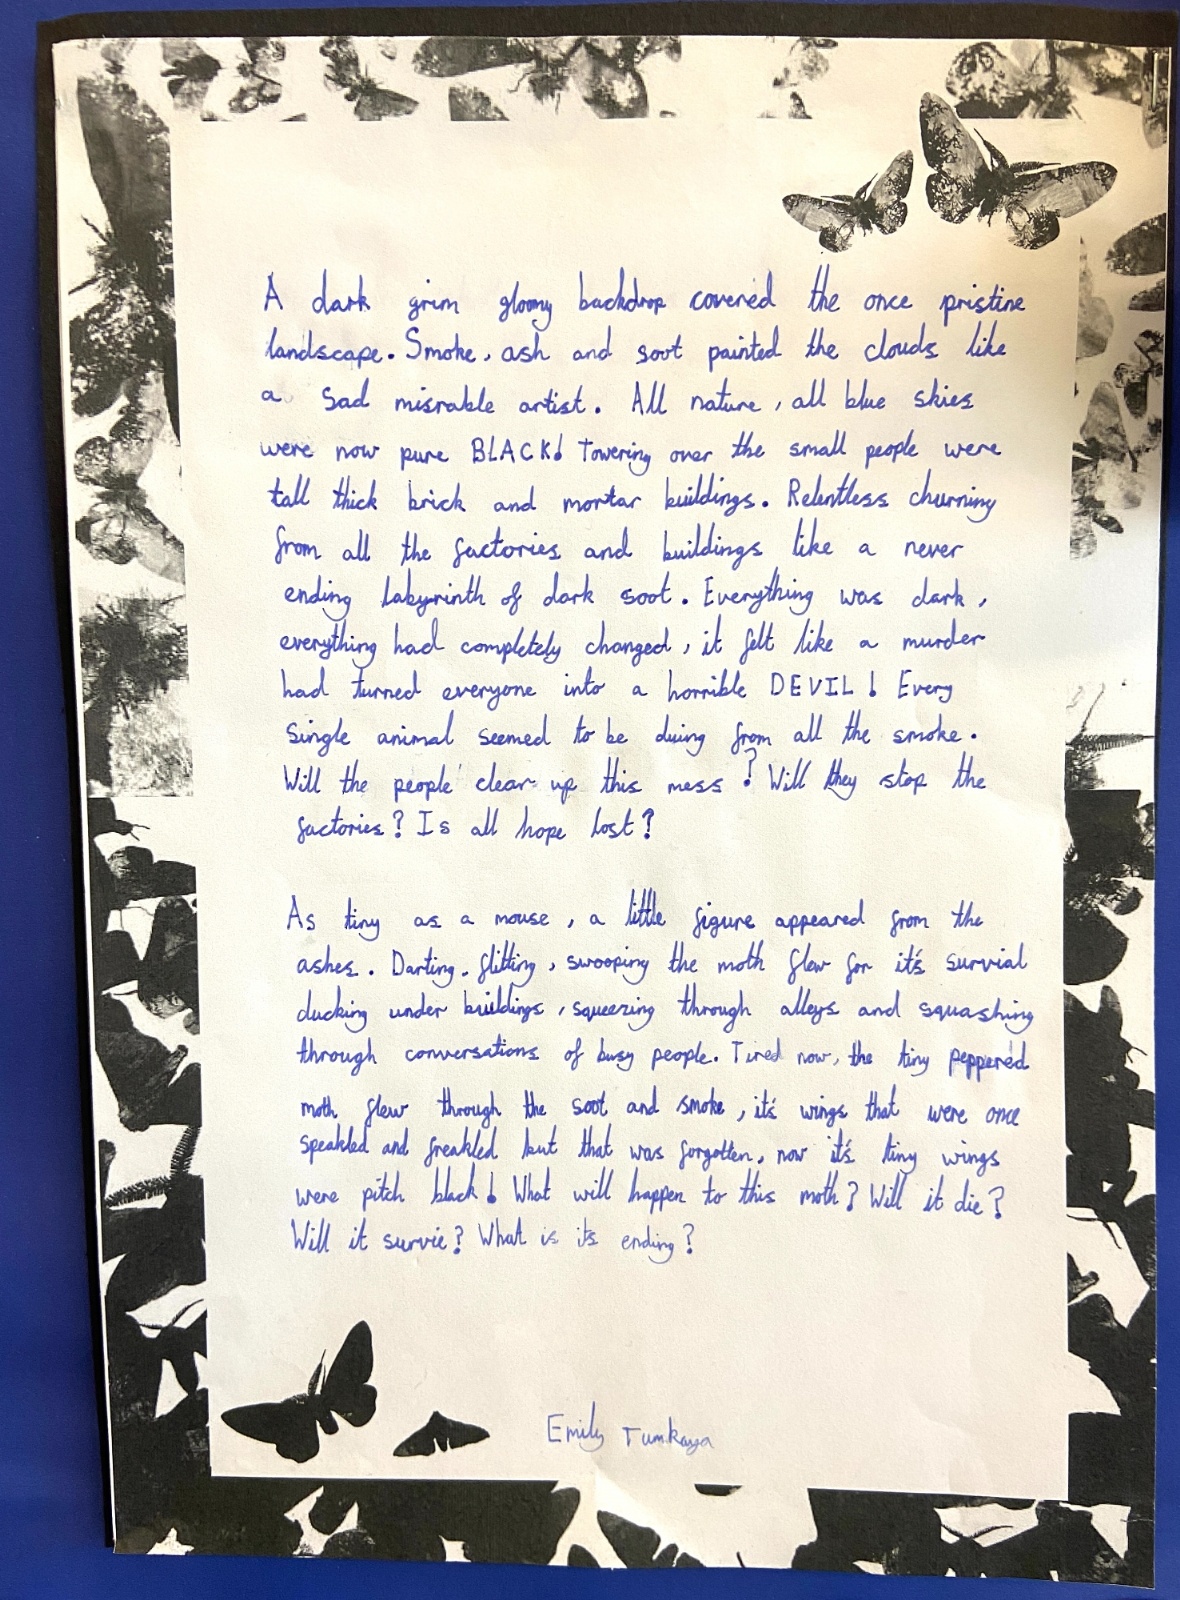 A dark grim gloomy backdrop covered the once pristine
landscape. Smoke, ash and soot painted the clouds like
a sad misrable artist. All nature, all blue skies
were now pure BLACK! Towering over the small people were
tall thick brick and mortar buildings. Relentless churning
from all the factories and buildings like a never
ending labyrinth of dark soot. Everything was dark,
everything had completely changed, it felt like a murder
had turned everyone into a horrible DEVIL! Every
single animal seemed to be duing from all the smoke.
Will the people clear up this mess? Will they stop the
factories? Is all hope lost?
As tiny as a mouse, a little figure appeared from the
ashes. Darting, flitting, swooping the moth flew for it's survial
ducking under buildings, squeezing through alleys and squashing
through conversations of busy people. Tired now, the tiny peppered
moth flew through the soot and smoke, it's wings that were once
speakled and freakled but that was forgotten, now it's tiny wings
were pitch black! What will happen to this moth? Will it die?
Will it survie? What is it's ending?
Emily Tumkaya